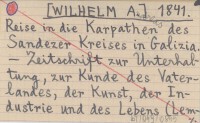 [WILHELM A.] 1841.
Reise in die Karpathen des
Sandezer Kreises in Galizia.
— Zeitschrift zur Unterhal-
tung, zur Kunde des Vater-
landes, der Kunst, der In-
dustrie und des Lebens (Lem-